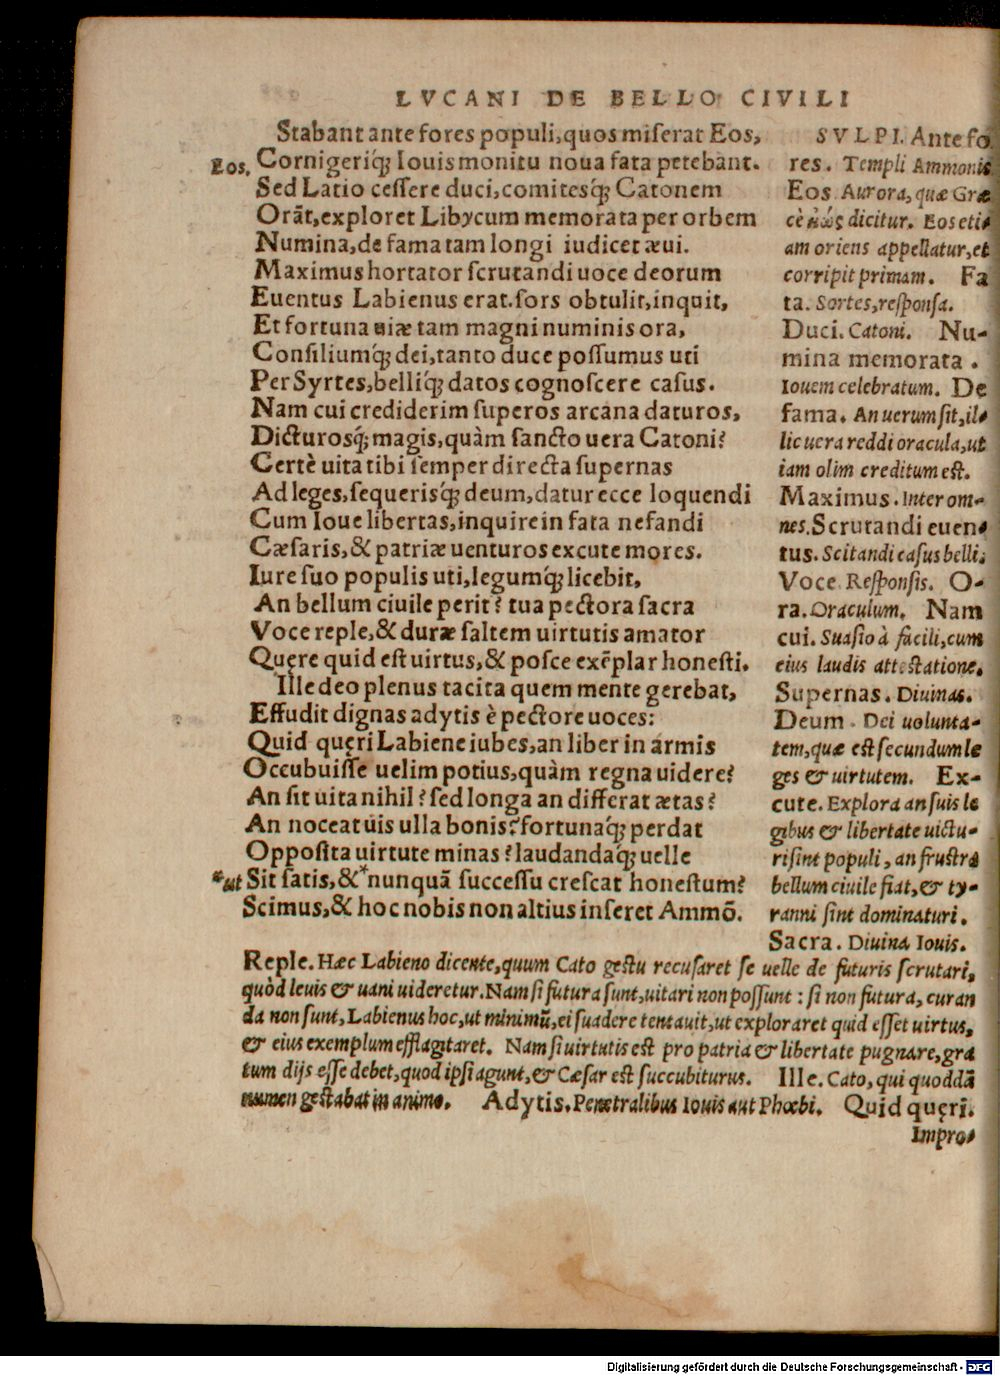 LVCANI DE BELLO CIVILI
Stabant ante fores populi, quos miserat Eos,
Eos,
Cornigeriq́; Iouis monitu noua fata petebant.
Sed Latio cessere duci, comitesq́; Catonem
Orãt, exploret Libycum memorata per orbem
Numina, de fama tam longi iudicet æui.
Maximus hortator scrutandi uoce deorum
Euentus Labienus erat. sors obtulit, inquit,
Et fortuna uiæ tam magni numinis ora,
Consiliumq́; dei, tanto duce possumus uti
Per Syrtes, belliq́; datos cognoscere casus.
Nam cui crediderim superos arcana daturos,
Dicturosq́; magis, quàm sancto uera Catoni?
Certè uita tibi semper directa supernas
Ad leges, sequerisq́; deum, datur ecce loquendi
Cum Ioue libertas, inquire in fata nefandi
Cæsaris, & patriæ uenturos excute mores.
Iure suo populis uti, legumq́; licebit,
An bellum ciuile perit? tua pectora sacra
Voce reple, & duræ saltem uirtutis amator
Quęre quid est uirtus, & posce exẽplar honesti.
Ille deo plenus tacita quem mente gerebat,
Effudit dignas adytis è pectore uoces:
Quid quęri Labiene iubes, an liber in armis
Occubuisse uelim potius, quàm regna uidere?
An sit uita nihil? sed longa an differat ætas?
An noceat uis ulla bonis? fortunaq́; perdat
Opposita uirtute minas? laudandaq́; uelle
*ut
Sit satis, & *nunquã successu crescat honestum?
Scimus, & hoc nobis non altius inseret Ammõ.
SVLPI. Ante fo
res. Templi Ammonis
Eos Aurora, quæ Græ
cè ἠὼς dicitur. Eos eti-
am oriens appellatur, et
corripit primam. Fa
ta. Sortes, responsa.
Duci. Catoni. Nu-
mina memorata.
Iouem celebratum. De
fama. An uerum sit, il-
lic uera reddi oracula, ut
iam olim creditum est.
Maximus. Inter om-
nes. Scrutandi euen-
tus. Scitandi casus belli.
Voce Responsis. O-
ra. Oraculum. Nam
cui. Suasio à facili, cum
eius laudis attestatione.
Supernas. Diuinas.
Deum. Dei uolunta-
tem, quæ est secundum le
ges & uirtutem. Ex-
cute. Explora an suis le
gibus & libertate uictu-
ri sint populi, an frustra
bellum ciuile fiat, & ty-
ranni sint dominaturi.
Sacra. Diuina Iouis.
Reple. Hæc Labieno dicente, quum Cato gestu recusaret se uelle de futuris scrutari,
quòd leuis & uani uideretur. Nam si futura sunt, uitari non possunt: si non futura, curan
da non sunt, Labienus hoc, ut minimũ, ei suadere tentauit, ut exploraret quid esset uirtus,
& eius exemplum efflagitaret. Nam si uirtutis est pro patria & libertate pugnare, gra
tum dijs esse debet, quod ipsi agunt, & Cæsar est succubiturus. Ille. Cato, qui quoddã
numen gestabat in animo. Adytis. Penetralibus Iouis aut Phœbi. Quid quęri.
Impro-
Digitalisierung gefördert durch die Deutsche Forschungsgemeinschaft - DFG